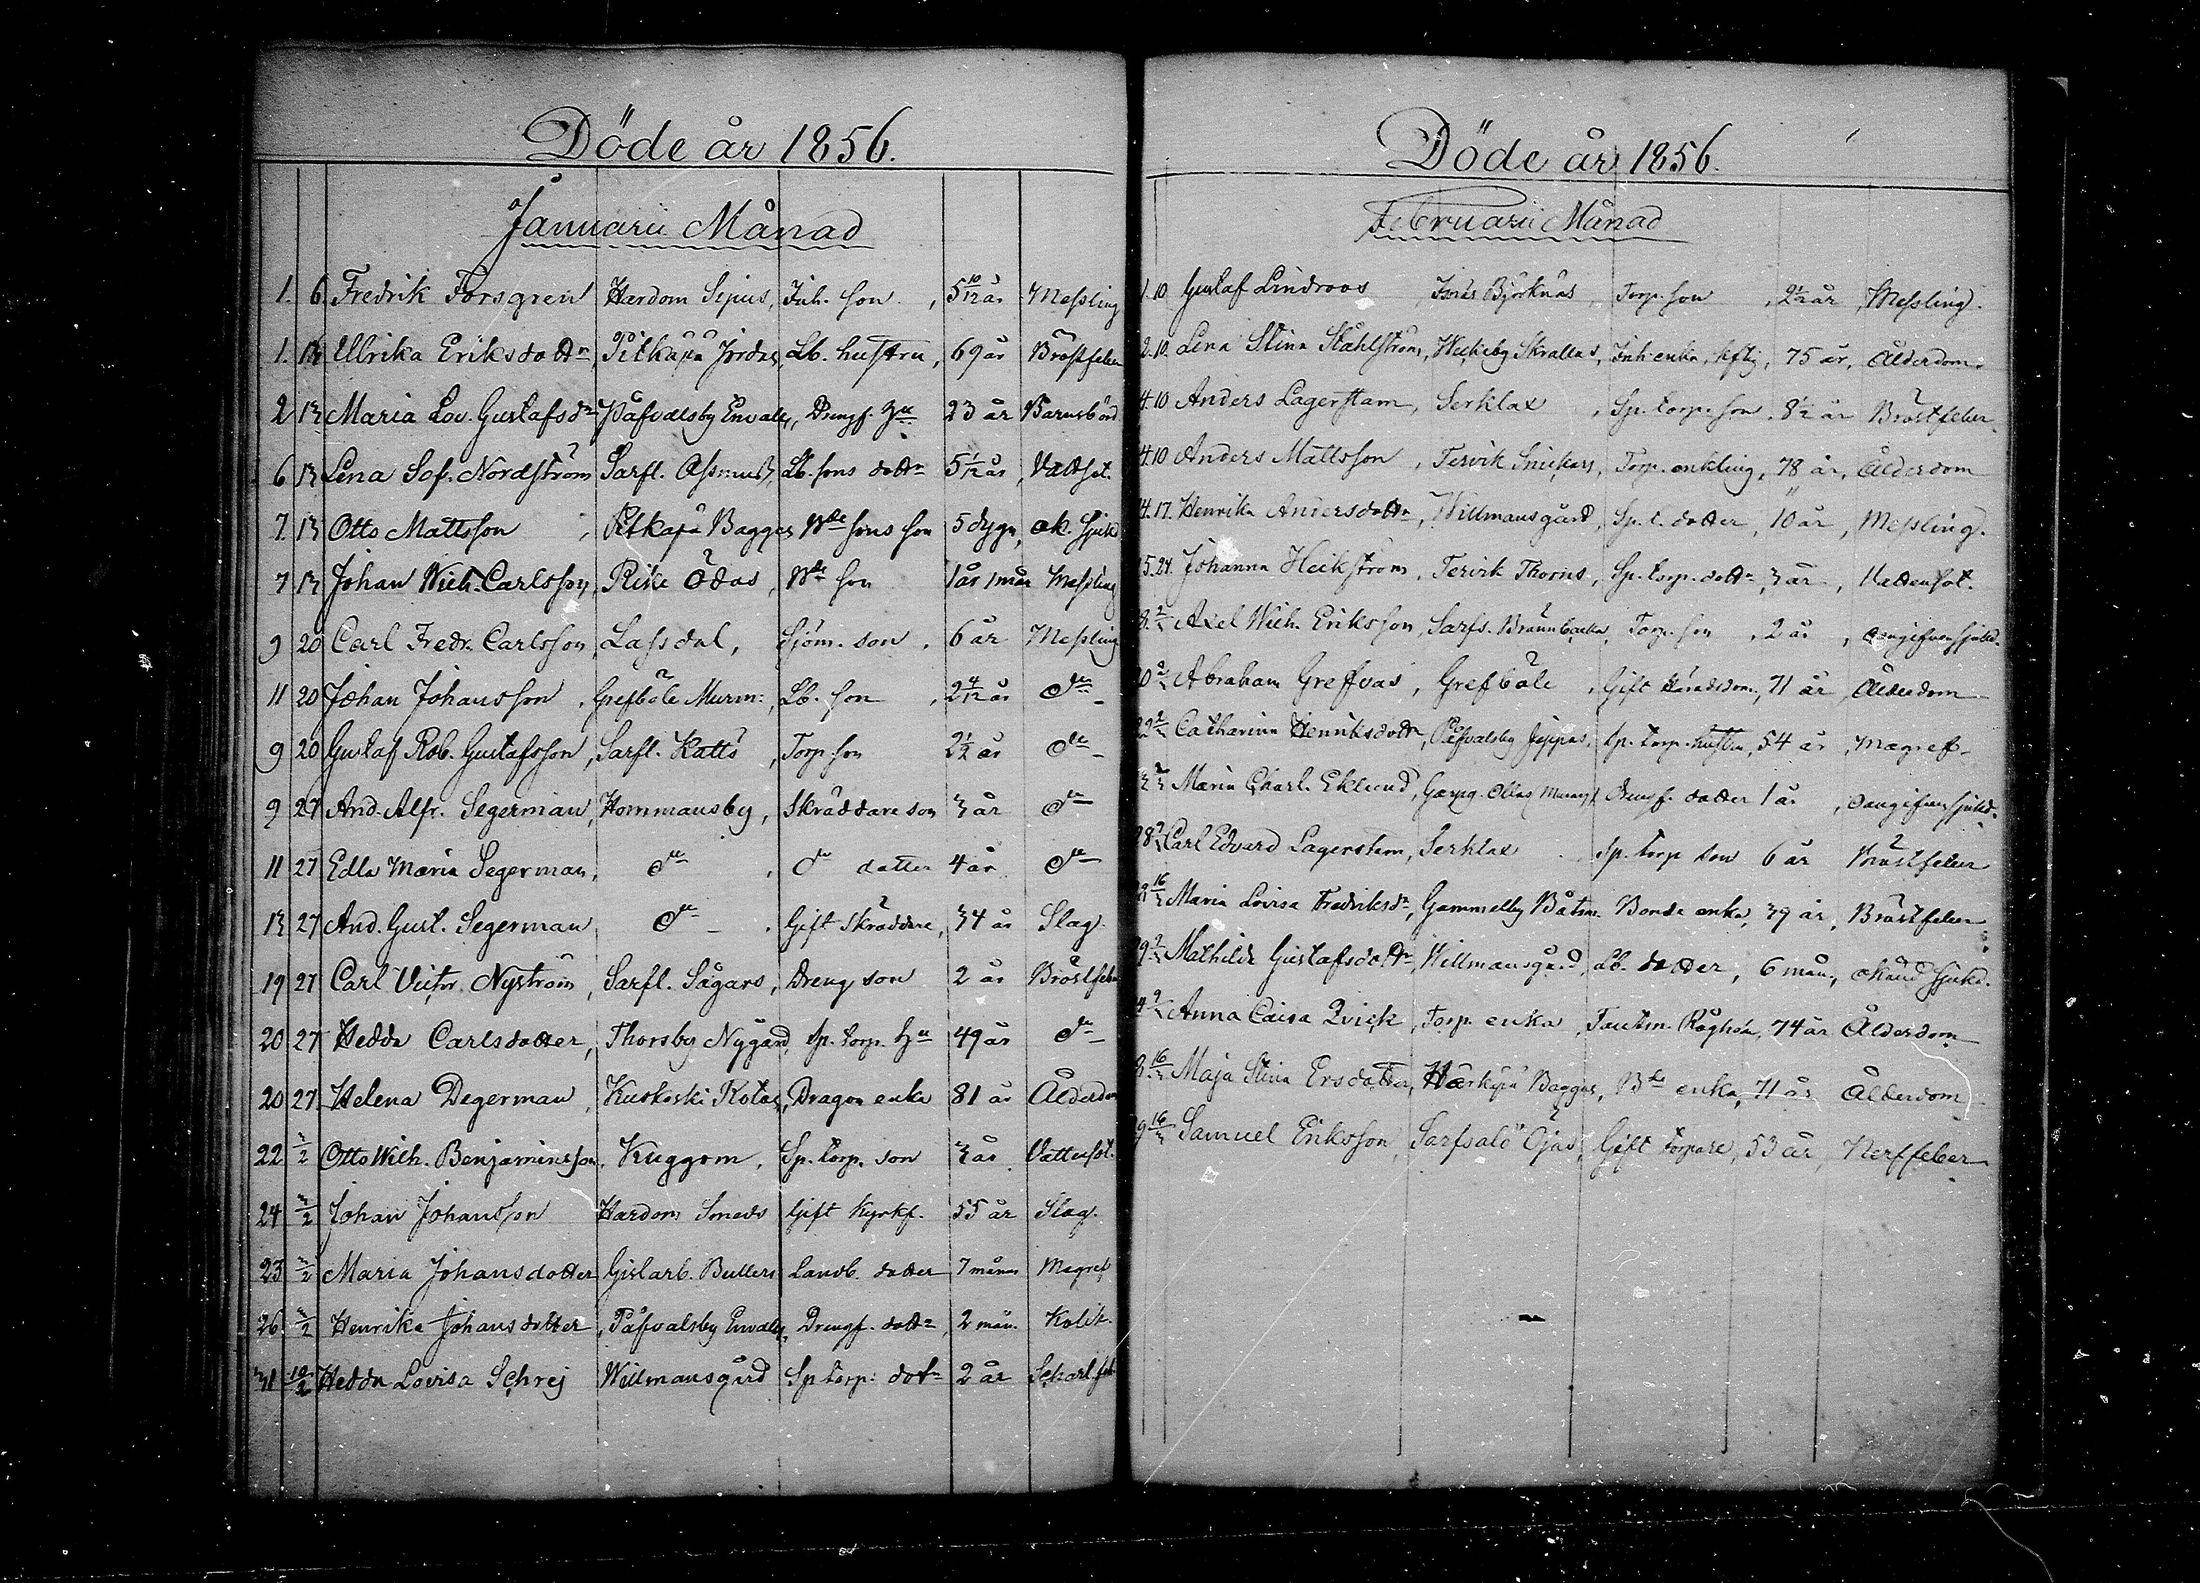 Döde år 1856.
Januarii Månad
1. 6. Fredrik Forsgren Hardom Sipus, Inh. son, 5 10/12 år Messling
1. 13 Ulrika Eriksdottr, Pitkäpä Jordas, Lb. hustru, 69 år Bröstfeber
2 13 Maria Lov. Gustafsdr Påfvalsby Envalds, Drengs. Hu 23 år Barnsbörd
6 13 Lena Sof. Nordström Sarfl. Assmus, Lb. sons dottr 5 1/12 år, Vattsot.
7. 13 Otto Mattsson, Pitkäpä Bagges Bde sons son 5 dygn, ok. sjukd
7 13 Johan Wilh. Carlsson, Rike Ödas, Bde son 1 år 1 mån Messling
9 20 Carl Fredr. Carlsson, Lassdal, Sjöm. son, 6 år Messling
11 20 Johan Johansson, Grefböle Murm:, Lb. son, 2 4/12 år do
9 20 Gustaf Rob. Gustafsson, Sarfl. Katts, Torp. son 2 1/2 år do
9 27 And. Alfr. Segerman, Hommansby, Skräddare son 3 år do
11 27 Edla Maria Segerman, do, do dotter 4 år do
13 27 And. Gust. Segerman do, Gift Skräddare, 34 år Slag.
19 27 Carl Victor Nyström, Sarfl. Sågars, Dreng son 2 år Bröstfeber
20 27 Hedda Carlsdotter, Thorsby Nygård, Sp. torp. Hu 49 år do
20 27 Helena Degerman, Kuskoski Kotas, Dragon enka 81 år Ålderdom
22 3/2 Otto Wilh. Benjaminsson, Kuggom, Sp. torp. son 3 år Vattusot.
24 3/2 Johan Johansson Hardom Smeds Gift Kyrkf. 55 år Slag.
23 3/2 Maria Johansdotter Gislarb. Bullers Landb. dotter 7 månr Magref
26 3/2 Henrika Johansdotter, Påfvalsby Envalds, Drengs. dottr, 2 mån. Kolik.
31 10/2 Hedda Lovisa Schrej Willmansgård Sp torp: dotr 2 år Scharl.feb
Döde år 1856.
Februarii Månad
1. 10. Gustaf Lindroos Isnäs Björknäs, Torp. son, 2 1/2 år, Messling.
2. 10. Lena Stina Stählström, Wäckeby Skrallas, Inh. enka, hftig, 75 år, Ålderdom.
4. 10 Anders Lagerstam, Serklax, Sp. torp. son, 8 1/2 år Bröstfeber.
4. 10 Anders Mattsson, Tervik Snickars, Torp. enkling, 78 år, Ålderdom
14. 17. Henrika Andersdottr, Willmansgård, Sp. t. dotter, 10 år, Messling.
15. 24. Johanna Heikström, Tervik Thorns, Sp. torp. dottr 3 år, Vattensot.
18. 2/3 Axel Wilh. Eriksson, Sarfs. Brännbacka, Torp. son, 2 år, oangifven sjukd.
20 2/3 Abraham Greffvas, Grefböle, Gift Häradsdom., 71 år, Ålderdom
22 2/3 Catharina Henriksdottr, Påfvalsby Jeppas, Sp. torp. hustru, 54 år, Magref.
2/3 Maria Charl. Eklund, Garpg. Ollas, Drengs. dotter 1 år, oangifven sjukd.
28 9/3 Carl Edvard Lagerstam, Serklax Sp. torp son 6 år Bröstfeber
16/3 Maria Lovisa Fredriksdr, Gammelby Båtsm. Bonde enka, 39 år, Bröstfeber
9/3 Mathilda Gustafsdottr, Willmansgård, Lb. dotter, 6 mån., okänd sjukd.
9/3 Anna Caisa Qvick, Torp. enka, Tautm. Rågholm, 74 år Ålderdom
16/3 Maja Stina Ersdotter, Härkäpä Bagges, Bde enka, 71 år Ålderdom
16/3 Samuel Eriksson, Sarfsalö Ojas, Gift torpare, 53 år, Nerffeber